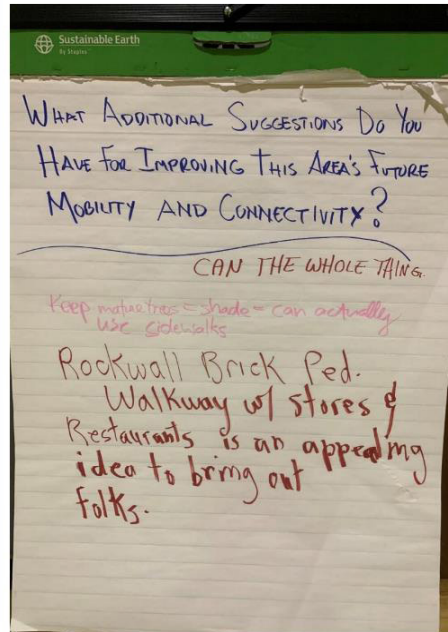 Sustainable Earth
By Staples
WHAT ADDITIONAL SUGGESTIONS DO YOU
HAVE FOR IMPROVING THIS AREA'S FUTURE
MOBILITY AND CONNECTIVITY?
CAN THE WHOLE THING.
Keep mature trees = shade = can actually
use sidewalks
Rockwall Brick Ped.
Walkway w/ stores &
Restaurants is an appealing
idea to bring out
folks.